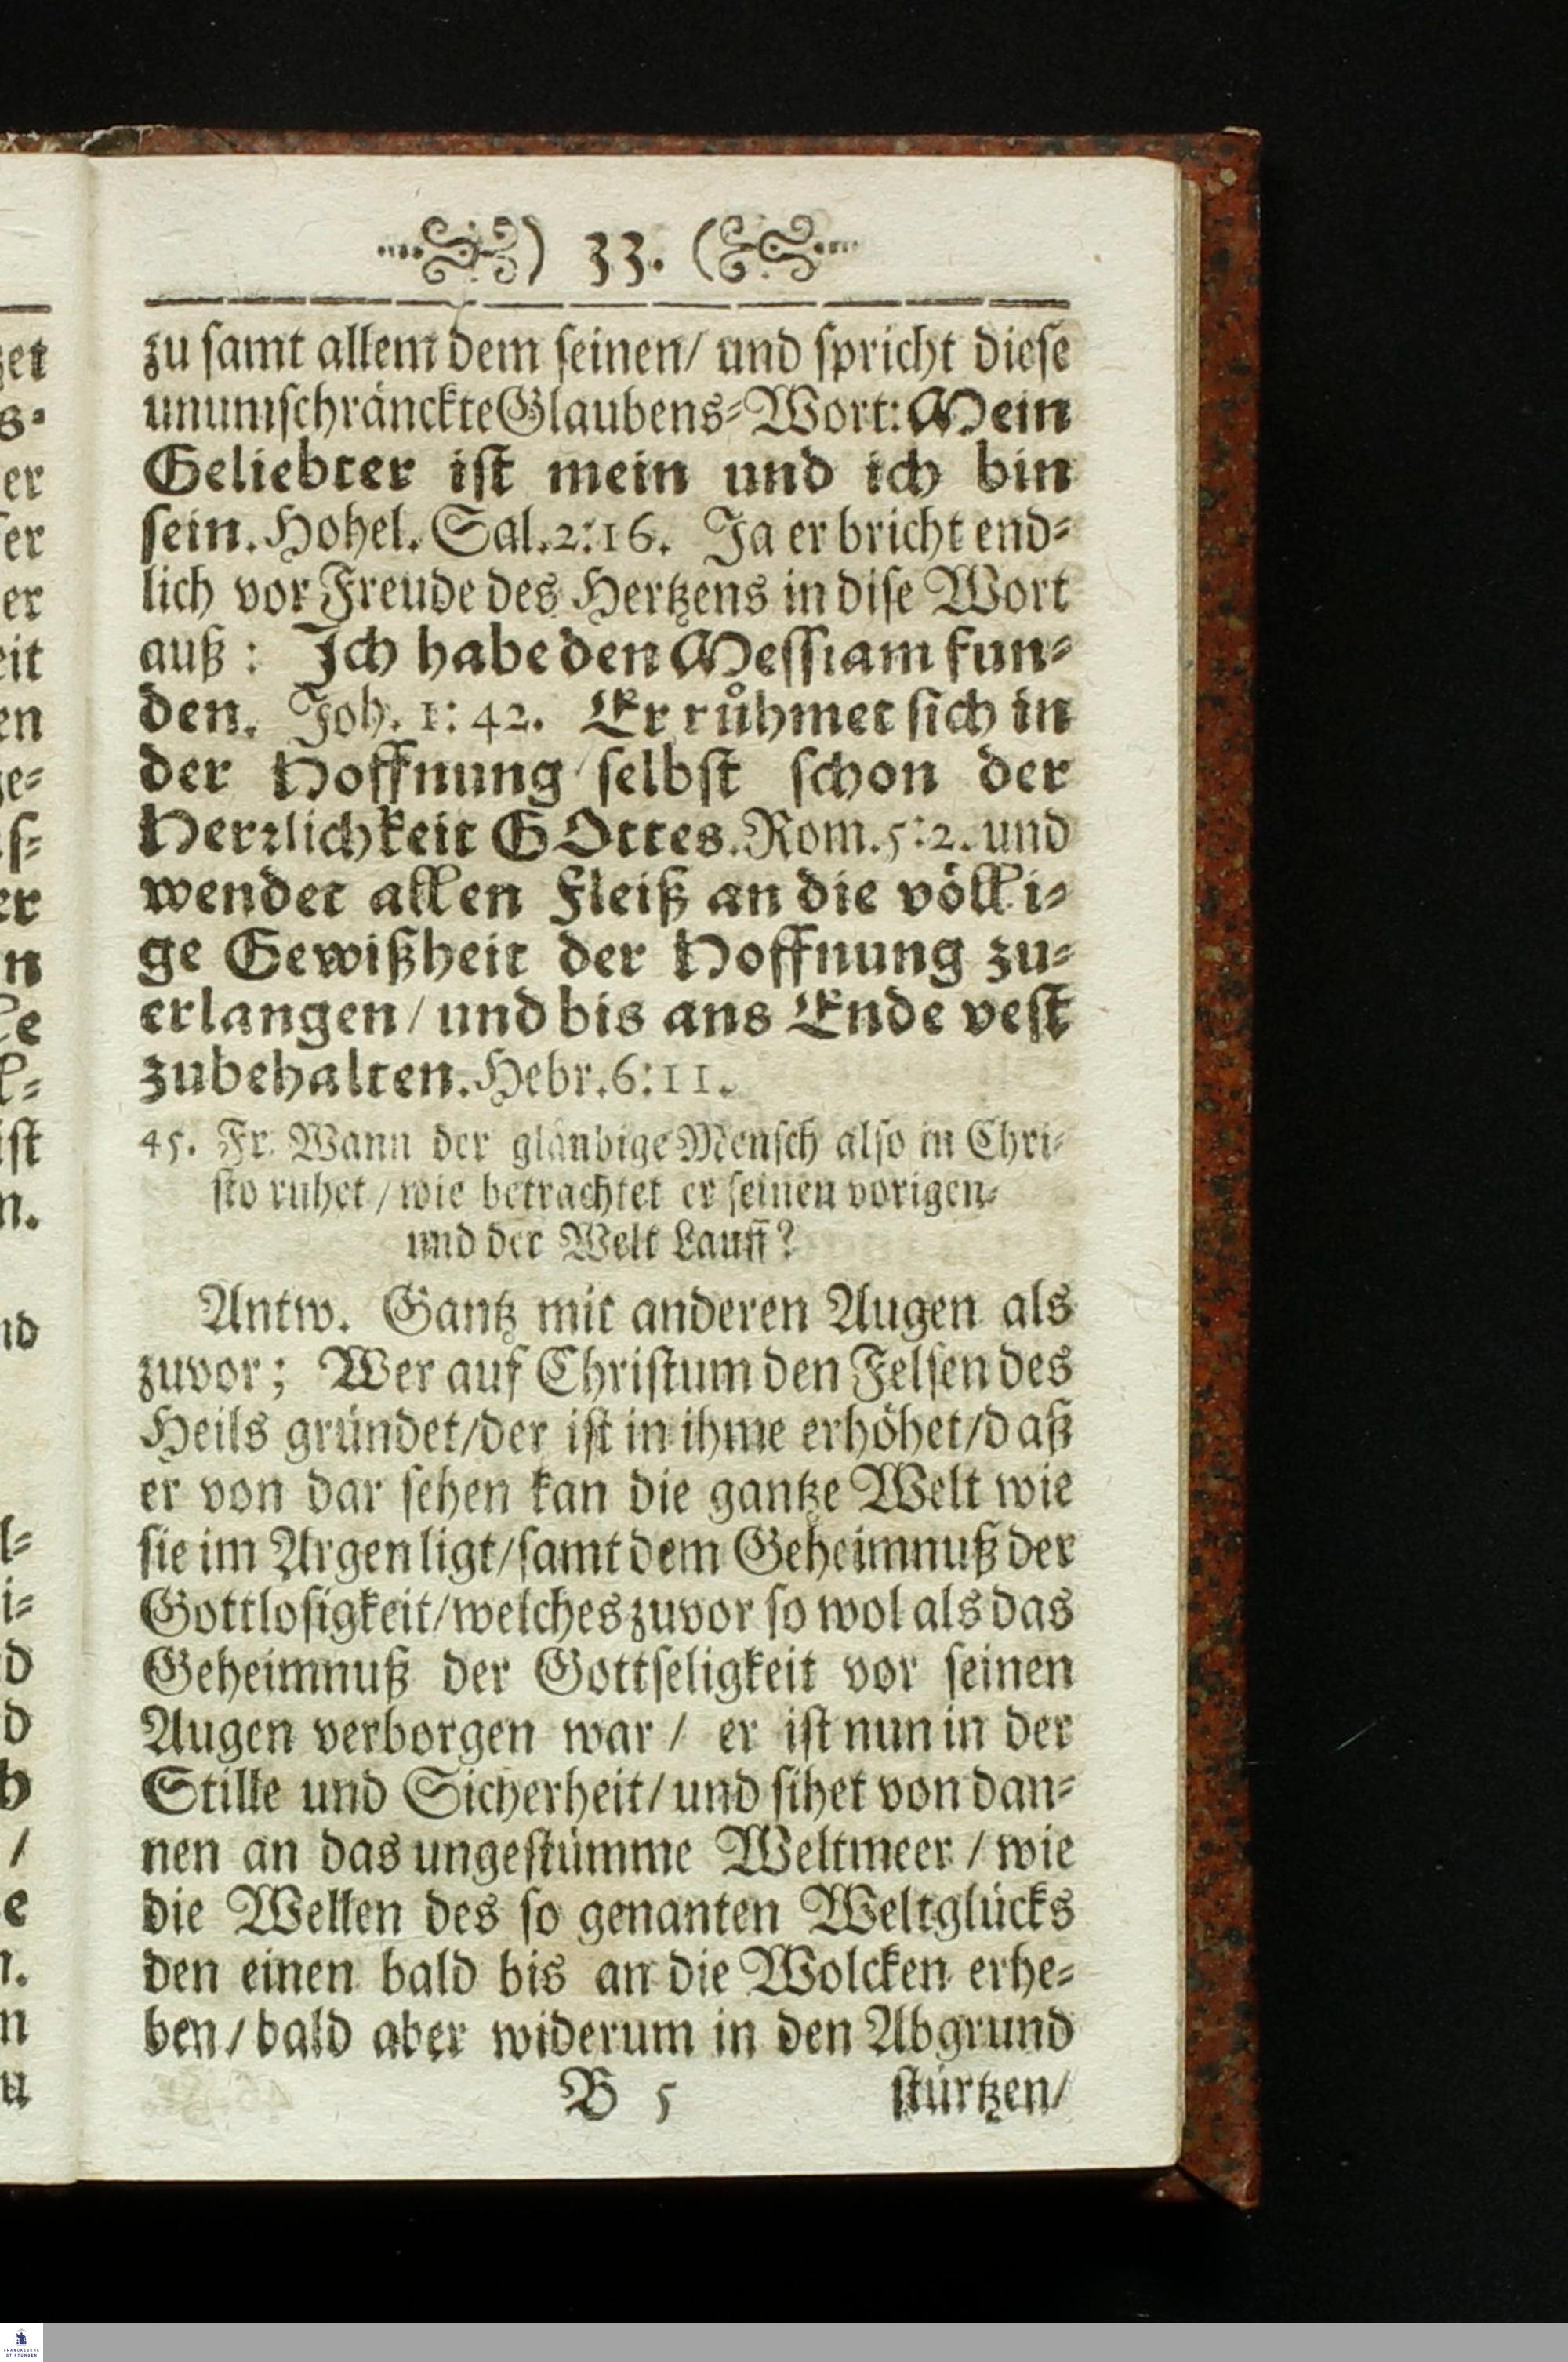 ) 33. (
zu samt allem dem seinen/ und spricht diese
unumschränckte Glaubens-Wort: Mein
Geliebter ist mein und ich bin
sein. Hohel. Sal. 2:16. Ja er bricht end-
lich vor Freude des Hertzens in dise Wort
auß: Ich habe den Messiam fun-
den. Joh. 1:42. Er rühmet sich in
der Hoffnung selbst schon der
Herrlichkeit GOttes. Rom. 5:2. und
wendet allen Fleiß an die völli-
ge Gewißheit der Hoffnung zu-
erlangen/ und bis ans Ende vest
zubehalten. Hebr. 6:11.
45. Fr. Wann der gläubige Mensch also in Chri-
sto ruhet/ wie betrachtet er seinen vorigen-
und der Welt Lauff?
Antw. Gantz mit anderen Augen als
zuvor; Wer auf Christum den Felsen des
Heils gründet/ der ist in ihme erhöhet/ daß
er von dar sehen kan die gantze Welt wie
sie im Argen ligt/ samt dem Geheimnuß der
Gottlosigkeit/ welches zuvor so wol als das
Geheimnuß der Gottseligkeit vor seinen
Augen verborgen war/ er ist nun in der
Stille und Sicherheit/ und sihet von dan-
nen an das ungestümme Weltmeer/ wie
die Wellen des so genanten Weltglücks
den einen bald bis an die Wolcken erhe-
ben/ bald aber widerum in den Abgrund
B 5 stürtzen/
FRANCKESCHE
STIFTUNGEN